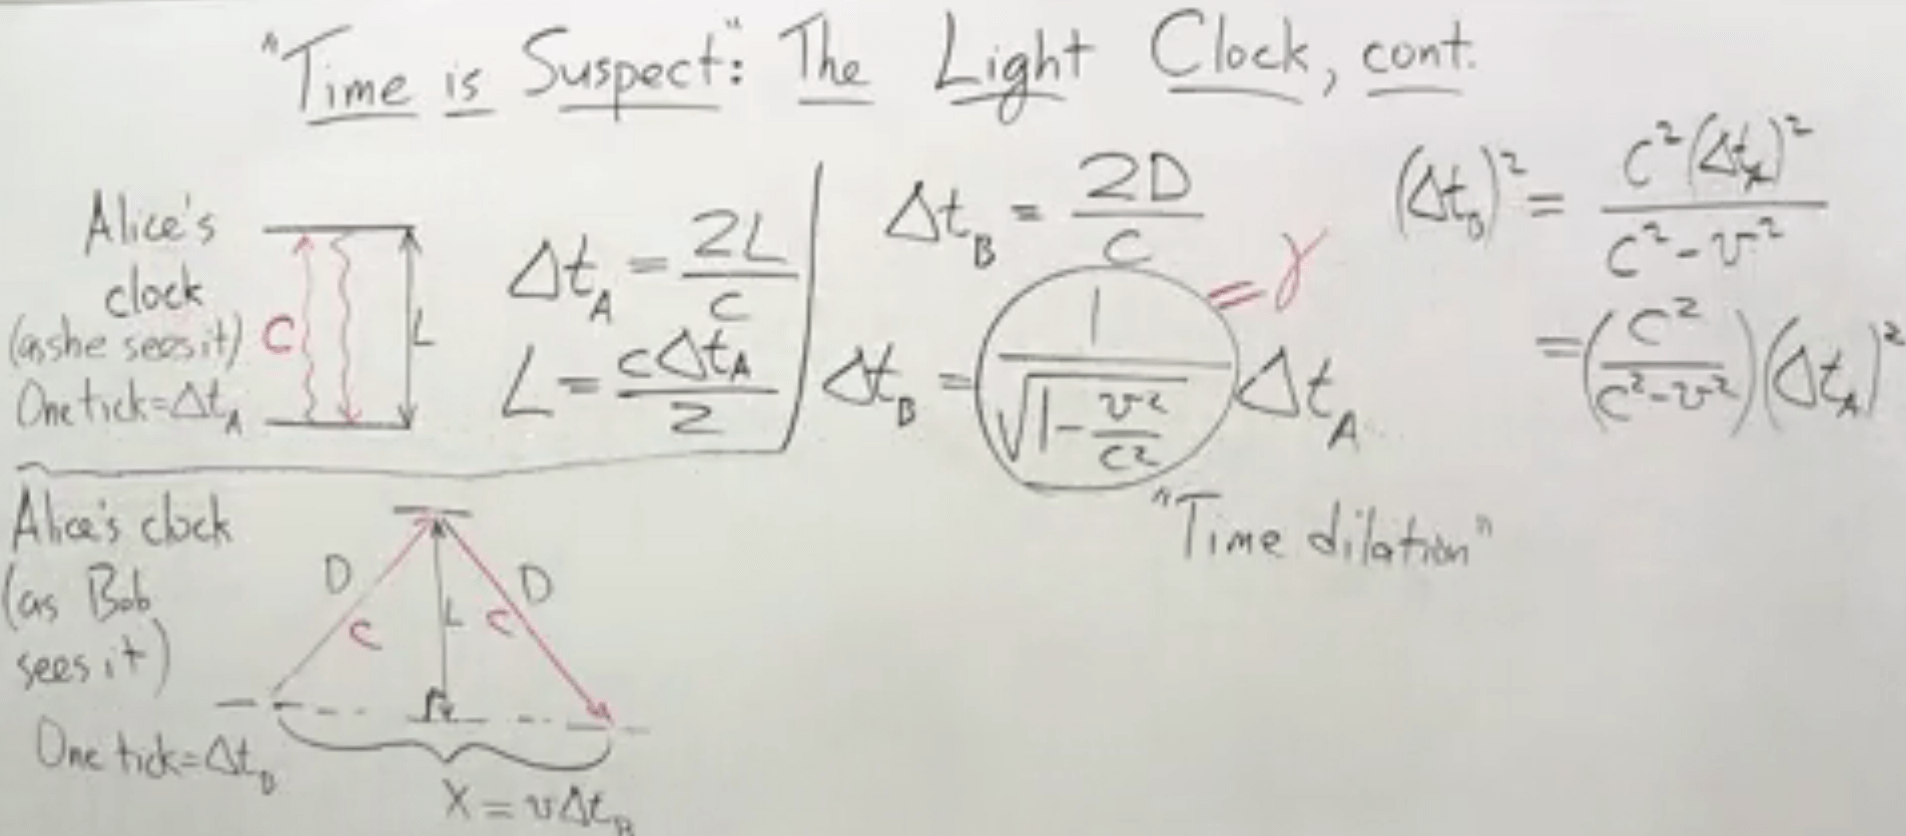 "Time is Suspect": The Light Clock, cont.
Alice's
clock
(as she sees it)
One tick = Δt_A
C
L
Δt_A = 2L/c
L = cΔt_A/2
Δt_B = 2D/C
Δt_B = 1/√(1 - v²/c²) Δt_A
= γ
"Time dilation"
(Δt_B)² = C²(Δt_A)²/(C² - v²)
= (C²/(C² - v²))(Δt_A)²
Alice's clock
(as Bob
sees it)
One tick = Δt_B
D
C
L
C
D
X = vΔt_B